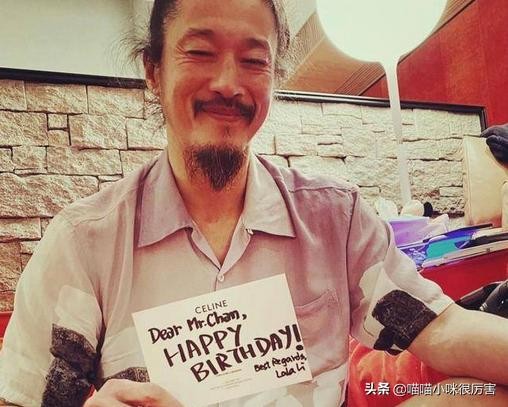 CELINE
Dear Mr. Chan,
HAPPY
BIRTHDAY!
Best Regards,
Lala Li
头条 @喵喵小咪很厉害